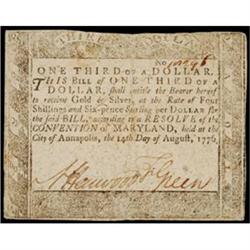 No
ONE THIRD OF A DOLLAR.
THIS BILL OF ONE THIRD OF A
DOLLAR, shall entitle the Bearer hereof
to receive Gold & Silver, at the Rate of Four
Shillings and Six-pence Sterling per DOLLAR for
the said BILL, according to a RESOLVE of the
CONVENTION of MARYLAND, held at the
City of Annapolis, the 14th Day of August, 1776.
Green